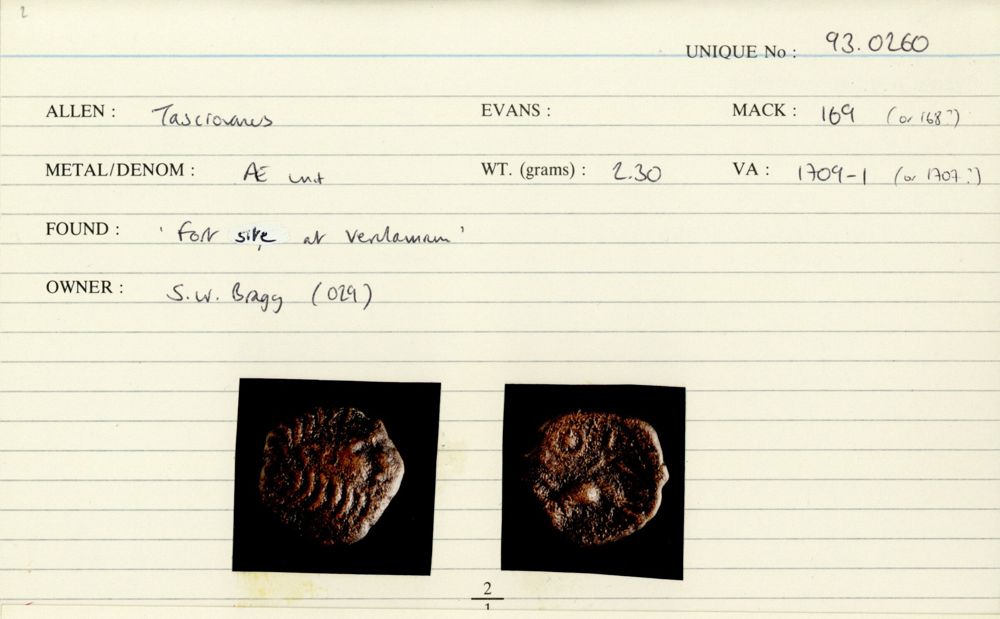 2
UNIQUE No : 93.0260
ALLEN : Tasciovanus EVANS : MACK : 169 (or 168?)
METAL/DENOM : Æ unit WT. (grams) : 2.30 VA : 1709-1 (or 1707?)
FOUND : 'Fort site at Verulamium'
OWNER : S.W. Bragg (029)
2
1